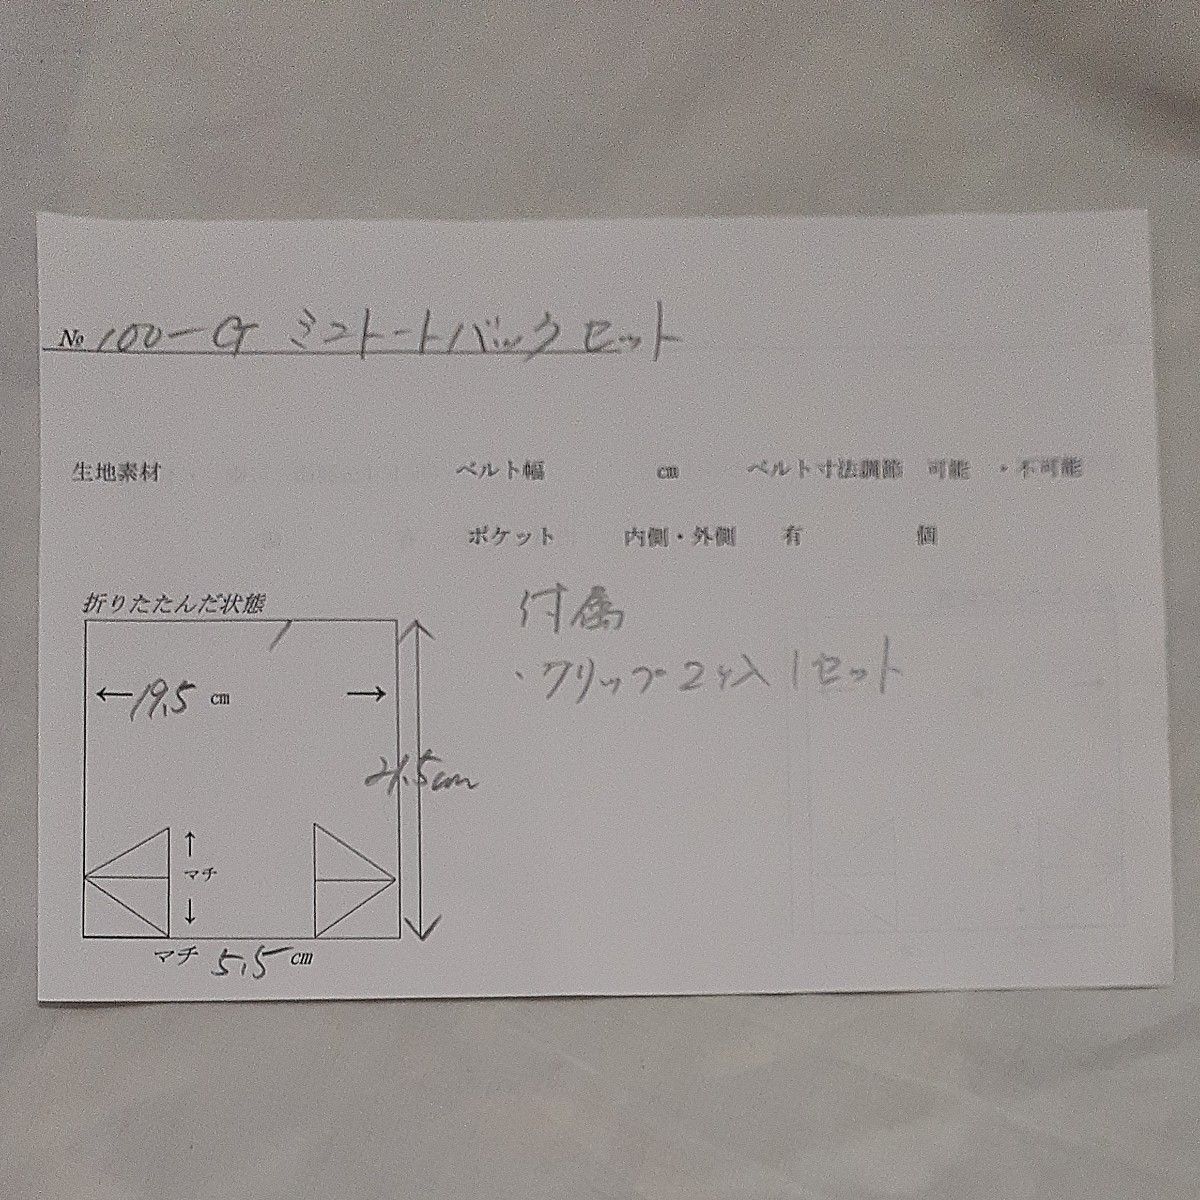 No 100-G ミニトートバックセット
生地素材 ベルト幅 cm ベルト寸法調節 可能 ・不可能
ポケット 内側・外側 有 個
折りたたんだ状態
付属
・クリップ2ヶ入1セット
←19.5 cm →
21.5cm
↑
マチ
↓
マチ 5.5 cm